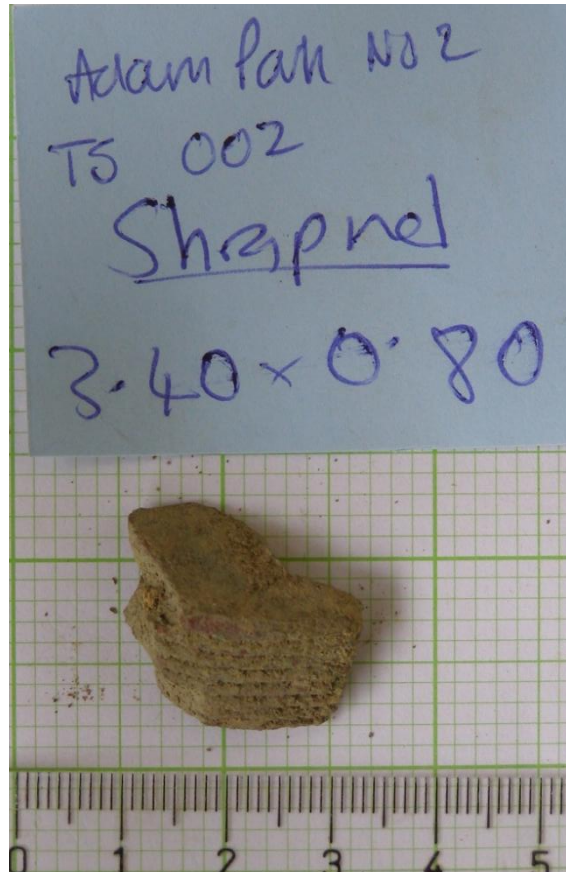 Adam Park No 2
TS 002
Shrapnel
3.40 x 0.80
0 1 2 3 4 5